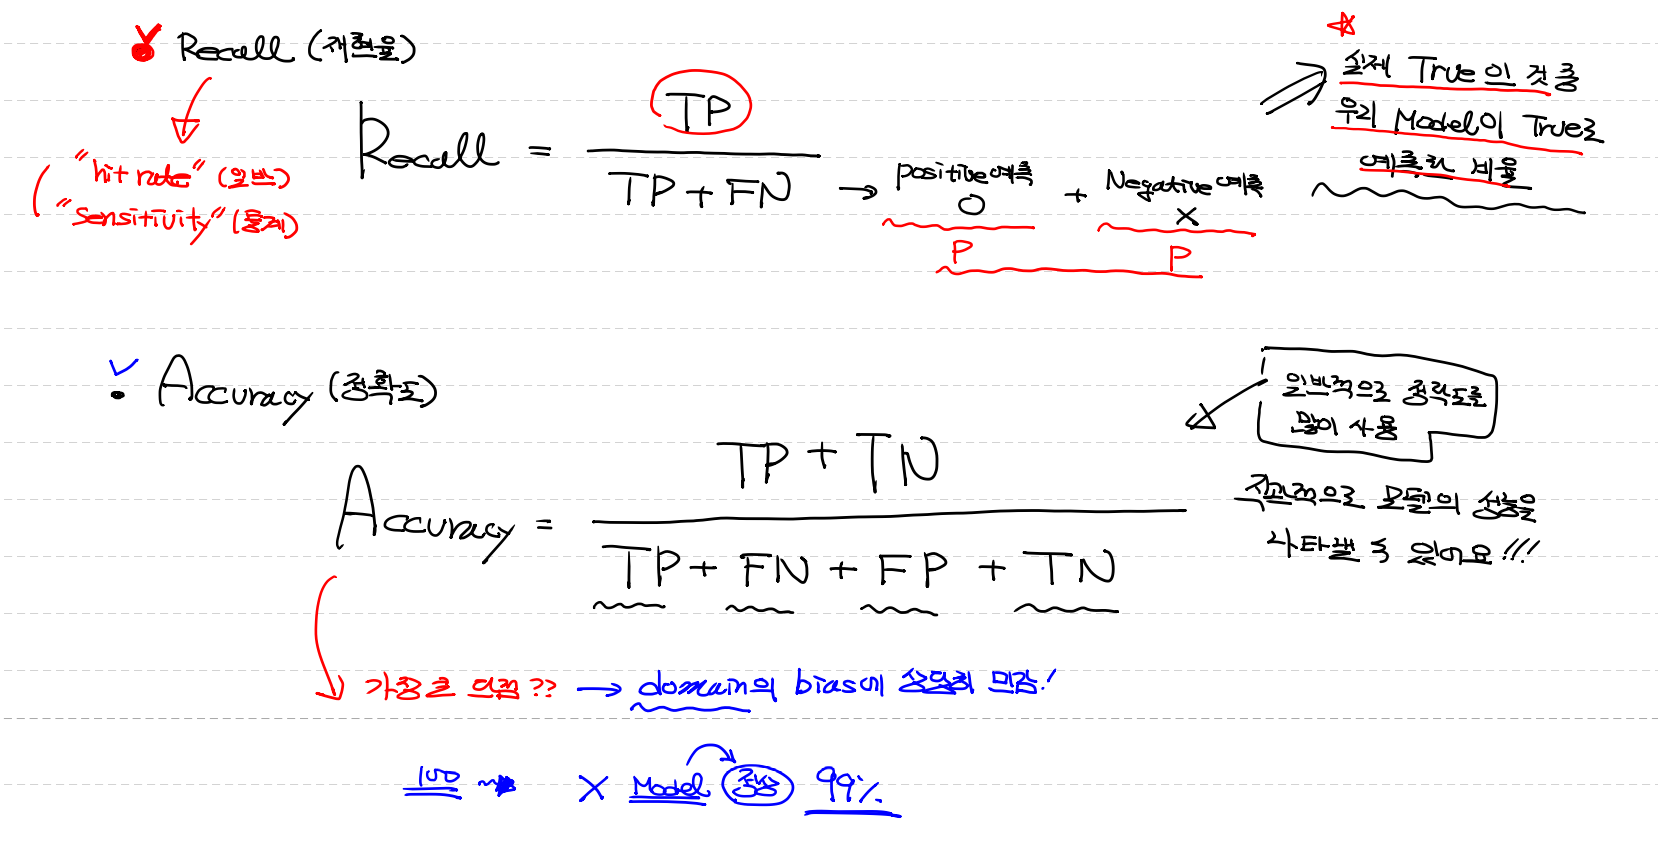 Recall (재현율)
"hit rate" (일반)
"Sensitivity" (통계)
Recall = TP / TP + FN → positive예측 O + Negative예측 X
P P
실제 True인 것 중
우리 Model이 True로
예측한 비율
Accuracy (정확도)
Accuracy = TP + TN / TP + FN + FP + TN
일반적으로 정확도를
많이 사용
직관적으로 모델의 성능을
나타낼 수 있어요!!!
가장 큰 단점?? → domain의 bias에 상당히 민감!
100 → X Model 정상 99%